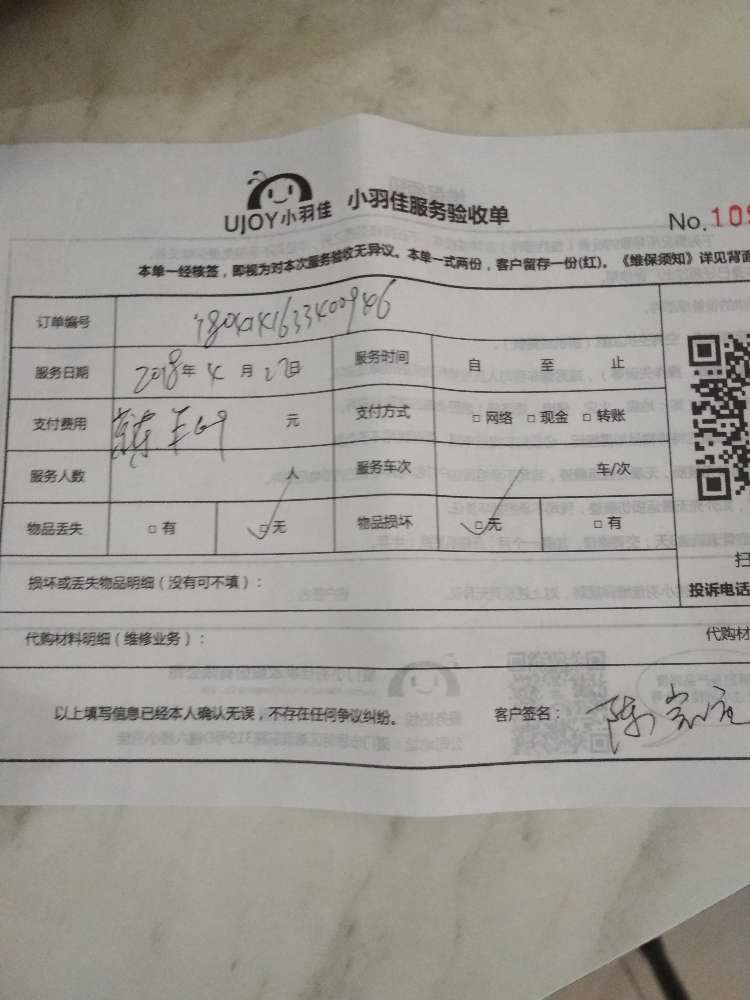 UJOY小羽佳 小羽佳服务验收单
No.109
本单一经核签，即视为对本次服务验收无异议。本单一式两份，客户留存一份(红)。《维保须知》详见背面
订单编号
服务日期 2018年4月27日 服务时间 自 至 止
支付费用 元 支付方式 □网络 □现金 □转账
服务人数 人 服务车次 车/次
物品丢失 □有 □无 物品损坏 □无 □有
扫
损坏或丢失物品明细（没有可不填）： 投诉电话
代购材料明细（维修业务）： 代购材
以上填写信息已经本人确认无误，不存在任何争议纠纷。 客户签名：